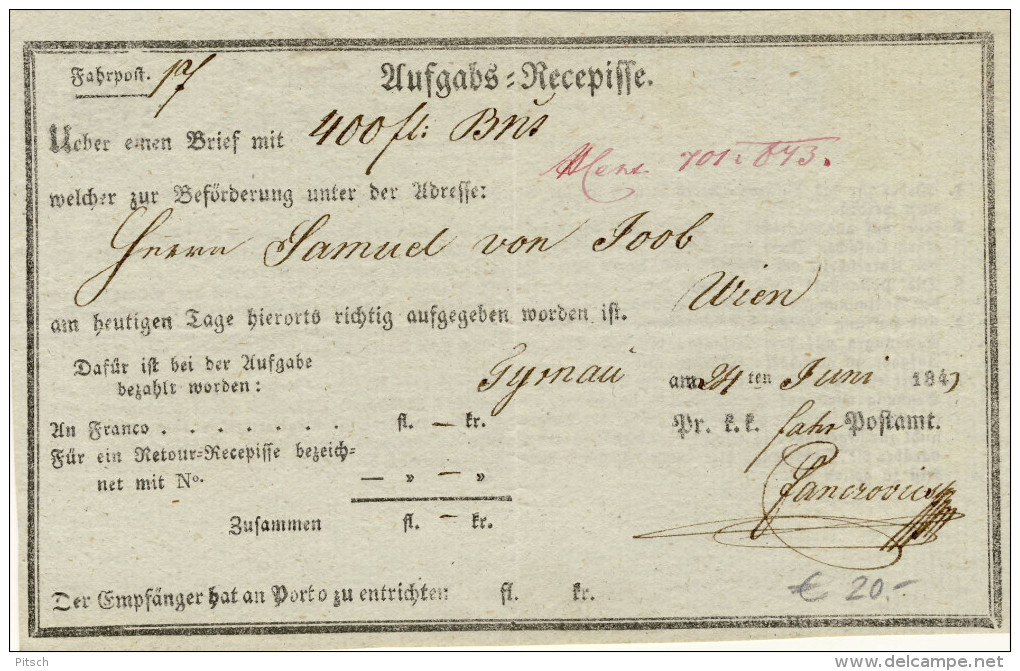 Fahrpost. 17
Aufgabs=Recepisse.
Ueber einen Brief mit 400 fl: Bns
701. 673.
welcher zur Beförderung unter der Adresse:
Herrn Samuel von Joob
Wien
am heutigen Tage hierorts richtig aufgegeben worden ist.
Dafür ist bei der Aufgabe
bezahlt worden:
Tyrnau am 24 ten Juni 184
An Franco . . . . . . . fl. – kr.
Pr. k. k. fahr Postamt.
Für ein Retour=Recepisse bezeich=
net mit No. — " – "
Zusammen fl. – kr.
Der Empfänger hat an Porto zu entrichten fl. kr.
€ 20.-
Pitsch
delcampe.net